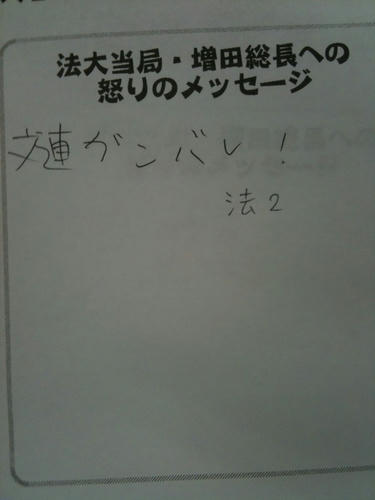 法大当局・増田総長への
怒りのメッセージ
文連ガンバレ！
法2